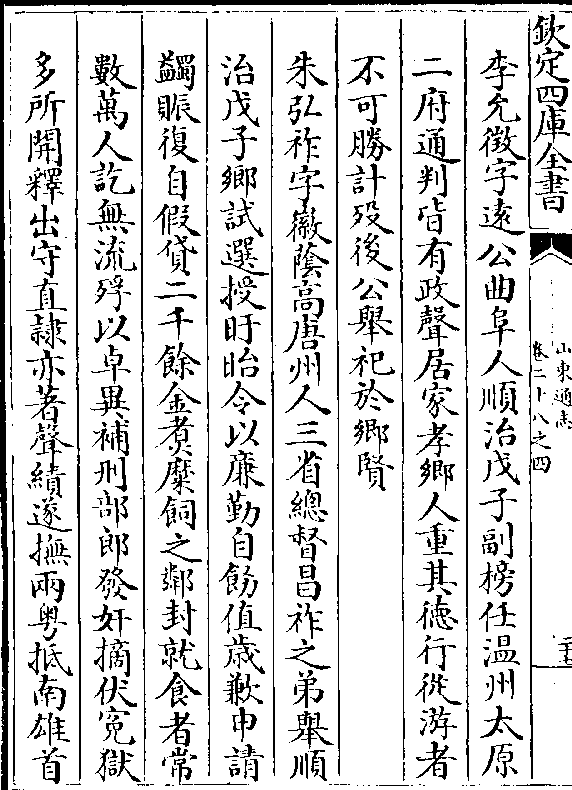 欽定四庫全書
山東通志
卷二十八之四
李允徵字遠公曲阜人順治戊子副榜任温州太原
二府通判皆有政聲居家孝鄉人重其德行從游者
不可勝計歿後公舉祀於鄉賢
朱弘祚字徽蔭高唐州人三省總督昌祚之弟舉順
治戊子鄉試選授盱眙令以廉勤自飭值歲歉申請
蠲賑復自假貸二千餘金煮糜飼之鄰封就食者常
數萬人訖無流殍以卓異補刑部郎發奸摘伏寃獄
多所開釋出守直隷亦著聲績遂撫兩粤抵南雄首